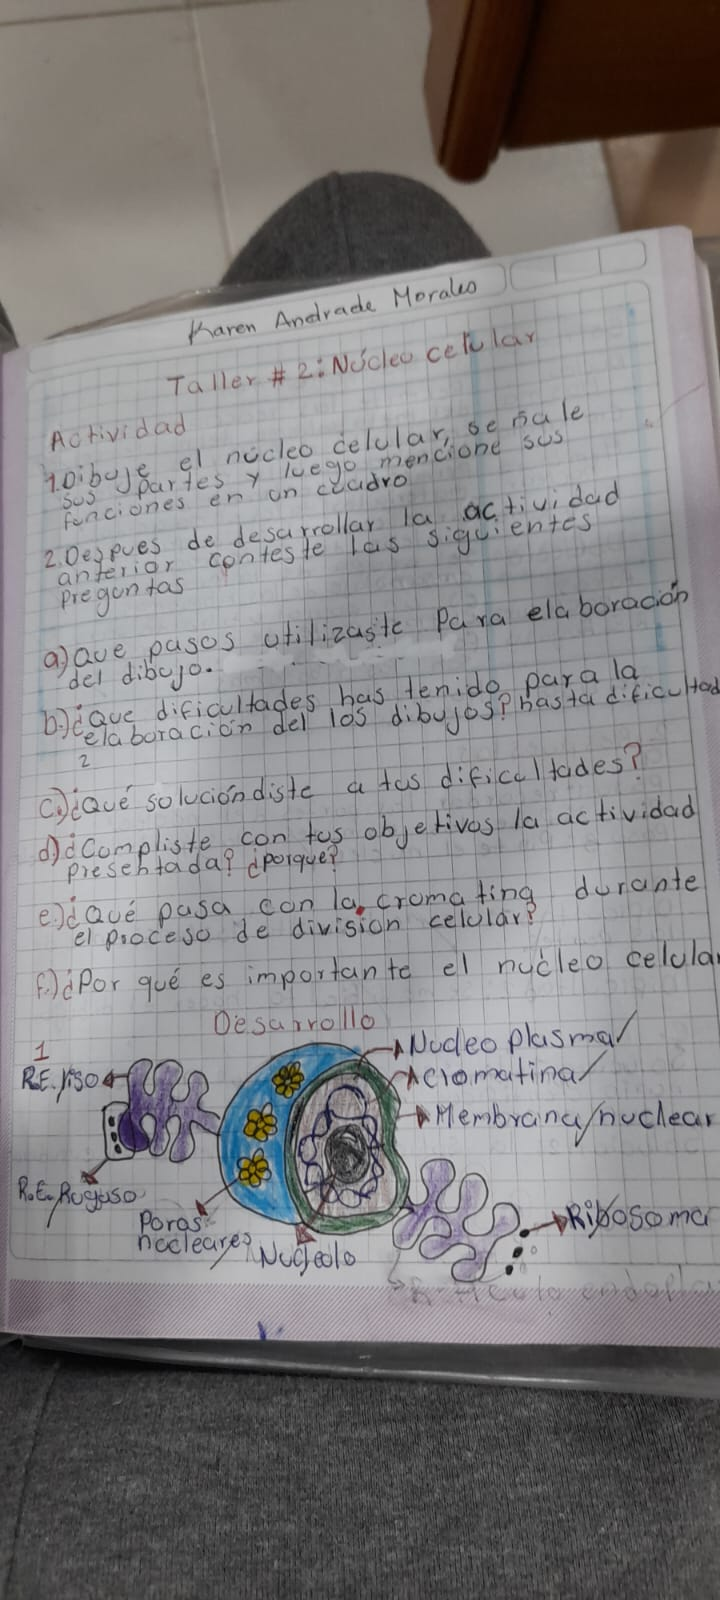 Karen Andrade Morales
Taller # 2: Núcleo celular
Actividad
1. Dibuje el núcleo celular, señale
sus partes y luego mencione sus
funciones en un cuadro
2. Despues de desarrollar la actividad
anterior conteste las siguientes
preguntas
a.) Que pasos utilizaste Para elaboración
del dibujo.
b.) ¿Que dificultades has tenido para la
elaboración del los dibujos? hasta dificultad
2
c.) ¿Qué solución diste a tus dificultades?
d) ¿Cumpliste con tus objetivos la actividad
presentada? ¿porque?
e.) ¿Qué pasa con la cromating durante
el proceso de division celular?
f.) ¿Por qué es importante el nucleo celular
Desarrollo
1
Nucleo plasma
R.E. liso
Cromatina
Membrana nuclear
R.E. Rugoso
Poros
nucleares
Nucleolo
Ribosoma